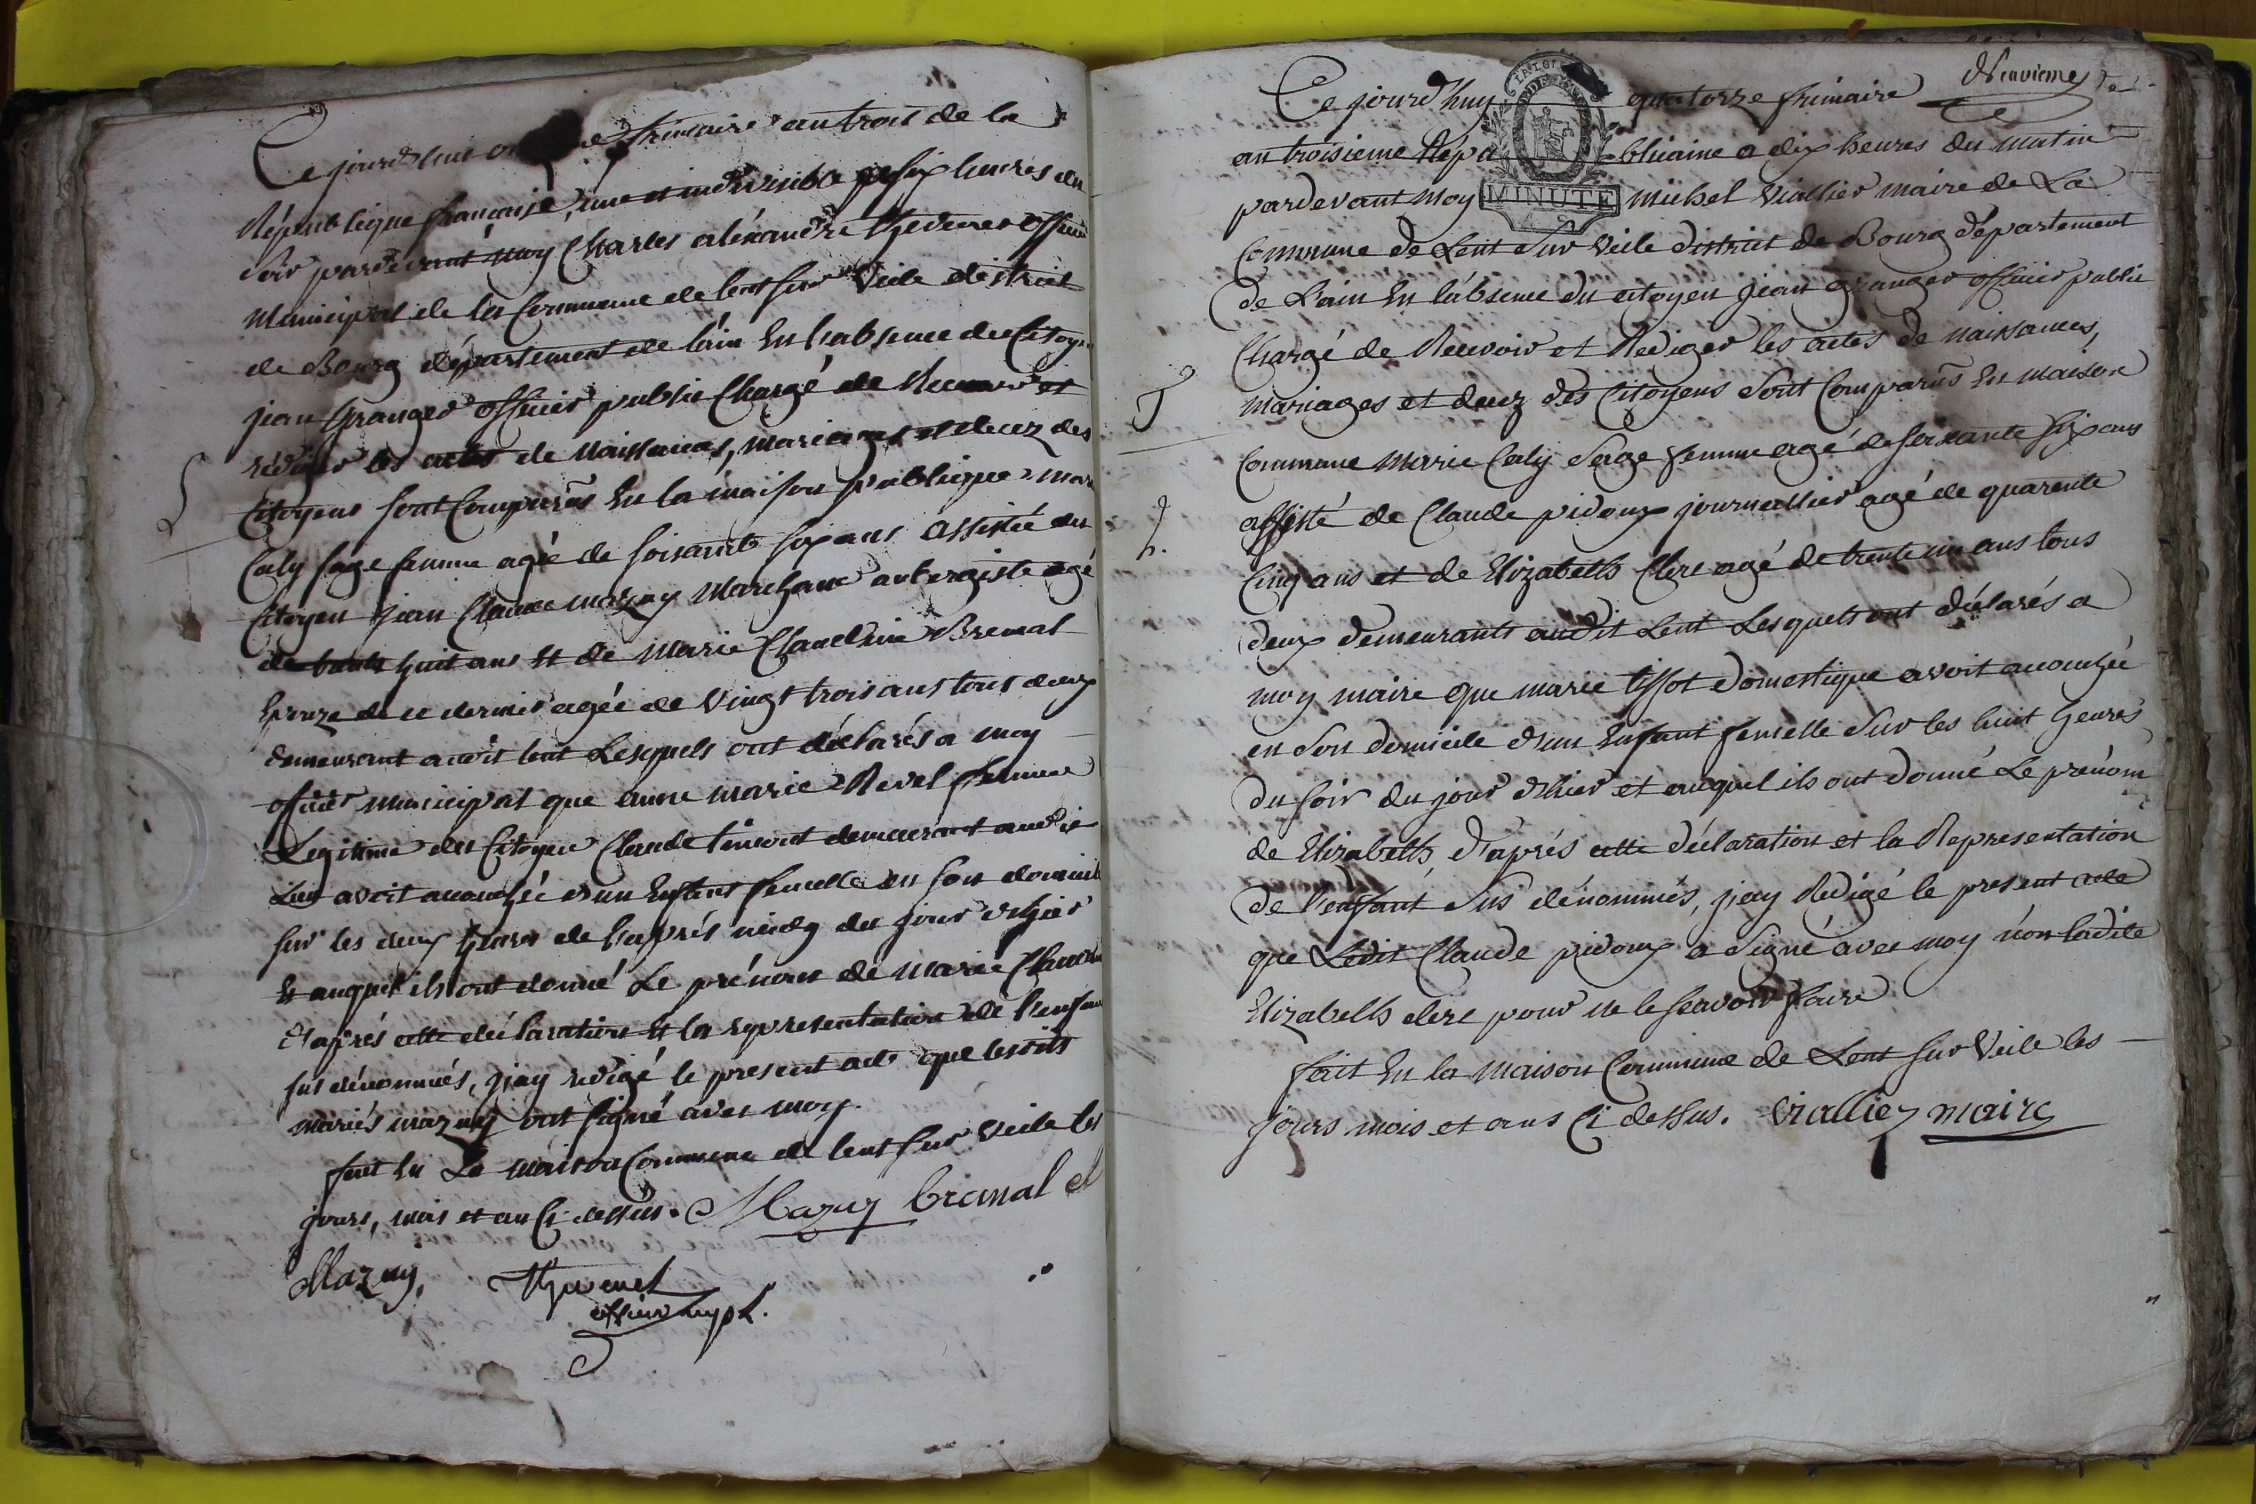 Ce jourd'hui frimaire an trois de la
République française, une et indivisible a six heures du
soir pardevant moy Charles aléxandre officier
Municipal de la Commune de lent sur Veile district
de Bourg département de l'ain En l'absence du Citoyen
jean Granger officier public Chargé de Recevoir et
rédiger les actes de Naissances, mariages et decez des
Citoyens sont Comparus En la maison publique marie
Caly sage femme agée de soisante six ans assistée du
Citoyen jean Claude mazuy Marchand aubergiste agé
de huit ans et de Marie Claudine Bremal
Epouze de ce dernier agée de Vingt trois ans tous deux
demeurant audit lent Lesquels ont déclarés a moy
officier Municipal que anne marie Revel femme
Legitime du Citoyen Claude demeurant audit
Lieu avoit accouchée d'un Enfant femelle en son domicile
sur les deux heures de l'après midy du jour d'hier
Et auquel ils ont donné Le prénom de Marie Claudine
D'après cette déclaration et la representation de l'enfant
sus dénommés, j'ay redigé le present acte que lesdits
mariés mazuy ont signé avec moy.
fait En La maison Commune de lent sur Veile les
jours, mois et an Ci-dessus. Mazuy bremal et
Mazuy,
officier
Neuvieme
Ce jourd'huy quatorze frimaire
an troisieme Répu blicaine a dix heures du matin
pardevant moy MINUTE michel Viallier maire de La
Commune de Lent Sur Veile district de Bourg département
de L'ain En l'absence du citoyen Jean Granger officier public
Chargé de Recevoir et Rediger les actes de naissances,
mariages et decez des Citoyens sont Comparus En maison
Commune Marie Caly Sage femme agé de soixante six ans
assisté de Claude pidoux journallier agé de quarente
Cinq ans et de Elizabeth Clerc agé de trente un ans tous
deux demeurants audit Lent Lesquels ont déclarés a
moy maire que marie tissot Domestique avoit accouchée
en Son domicile d'un Enfant femelle Sur les huit heures
du soir du jour d'hier et auquel ils ont donné Le prénom
de Elizabeth, d'après cette déclaration et la Representation
de l'enfant Sus dénommés, j'ay Redigé le present acte
que Ledit Claude pidoux a Signé avec moy non ladite
Elizabeth clerc pour ne le sçavoir faire
fait En la Maison Commune de Lent sur Veile les
jours mois et ans Ci dessus. Viallier maire